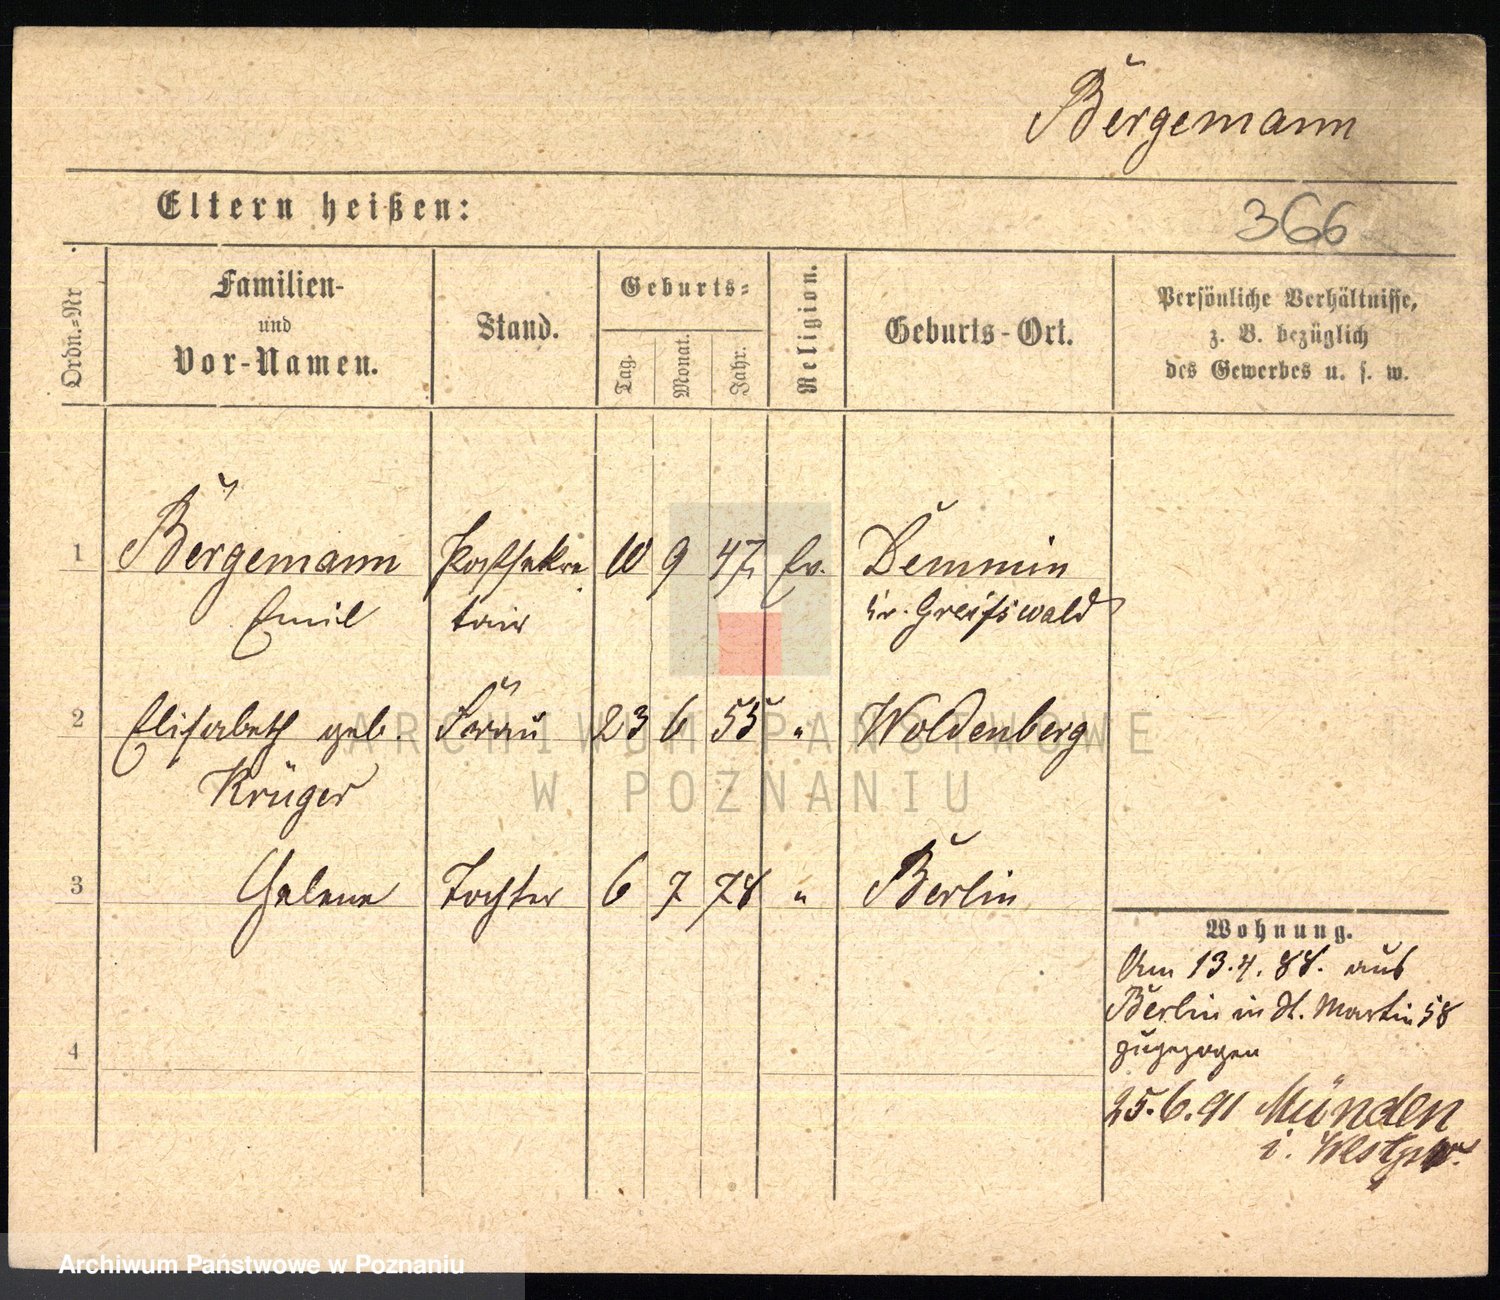 Bergemann
Eltern heißen:
366
Ordn.=Nr
Familien-
und
Vor-Namen.
Stand.
Geburts=
Tag.
Monat.
Jahr.
Religion.
Geburts-Ort.
Persönliche Verhältnisse,
z. B. bezüglich
des Gewerbes u. s. w.
1 Bergemann Postsekre 10 9 47 Ev. Demmin
Emil tair Kr. Greifswald
2 Elisabeth geb. Frau 23 6 55 " Woldenberg
Krüger
3 Helene Tochter 6 7 78 " Berlin
4
Wohnung.
Am 13.4.88. aus
Berlin in St. Martin 58
zugezogen
25.6.91 Münden
i.
ARCHIWUM PAŃSTWOWE
W POZNANIU
Archiwum Państwowe w Poznaniu